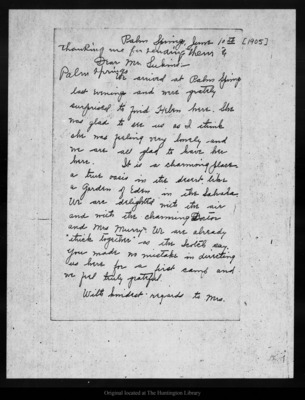 Palm Spring, June 10th [1905]
thanking me for sending them to
Palm Springs
Dear Mr. Lukens—
We arrived at Palm Spring
last evening and were greatly
surprised to find Helen here. She
was glad to see us as I think
she was feeling very lonely and
we are all glad to have her
here. It is a charming place
a true oasis in the desert like
a Garden of Eden in the Sahara
We are delighted with the air
and with the charming Doctor
and Mrs Murry. We are already
"stuck together" as the Scotch say.
You made no mistake in directing
us here for a first camp and
we feel truly grateful.
With kindest regards to Mrs.
Original located at The Huntington Library